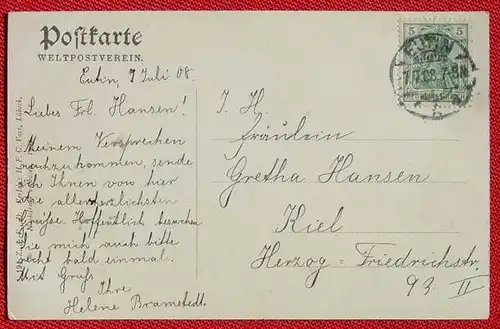 Postkarte
WELTPOSTVEREIN.
Eutin, 7 Juli 08.
Liebes Frl. Hansen!
Meinem Versprechen
nachzukommen, sende
ich Ihnen von hier
die allerherzlichsten
Grüße. Hoffentlich besuchen
Sie mich auch bitte
recht bald einmal.
Mit Gruß
Ihre
Helene Bramstedt.
5 5
EUTIN
J. H.
Fräulein
Gretha Hansen
Kiel
Herzog=Friedrichstr.
93 II